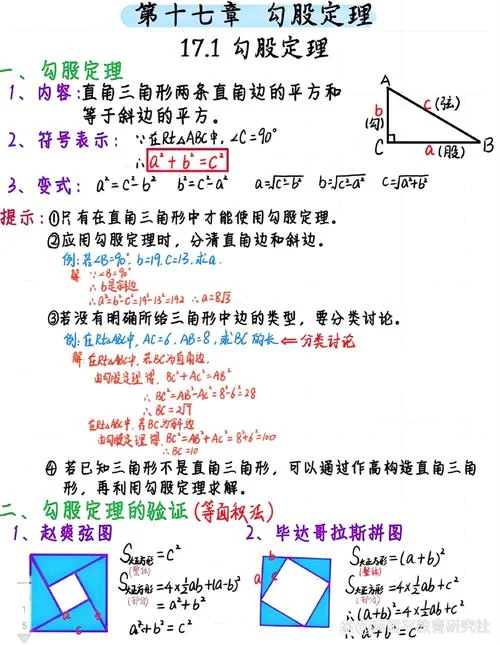 第十七章 勾股定理
17.1 勾股定理
一、勾股定理
1、内容:直角三角形两条直角边的平方和
等于斜边的平方。
2、符号表示: ∵在Rt△ABC中,∠C=90°
∴ a²+b²=c²
A
b
(勾)
c (弦)
C
a (股)
B
3、变式: a²=c²-b² b²=c²-a² a=√c²-b² b=√c²-a² c=√a²+b²
提示:①只有在直角三角形中才能使用勾股定理。
②应用勾股定理时,分清直角边和斜边。
例:若∠B=90°, b=19, c=13, 求a.
解 ∵∠B=90°
∴ b是斜边
∴a²=b²-c²=19²-13²=192 ∴a=8√3
③若没有明确所给三角形中边的类型,要分类讨论。
例:在Rt△ABC中, AC=6, AB=8, 求BC的长 ⇐分类讨论
解 在Rt△ABC中, 若BC为直角边,
由勾股定理得, BC²+AC²=AB²
∴BC²=AB²-AC²=8²-6²=28
∴BC=2√7
在Rt△ABC中, 若BC为斜边
由勾股定理得, BC²=AB²+AC²=8²+6²=100
∴BC=10
④ 若已知三角形不是直角三角形,可以通过作高构造直角三角
形,再利用勾股定理求解。
二、勾股定理的验证(等面积法)
1、赵爽弦图
a
b
c
S大正方形=c²
(整体)
S大正方形=4×½ab+(a-b)²
(部分)
=a²+b²
a²+b²=c²
2、毕达哥拉斯拼图
b
a
c
S大正方形=(a+b)²
(整体)
S大正方形=4×½ab+c²
(部分)
∴(a+b)²=4×½ab+c²
∴a²+b²=c²